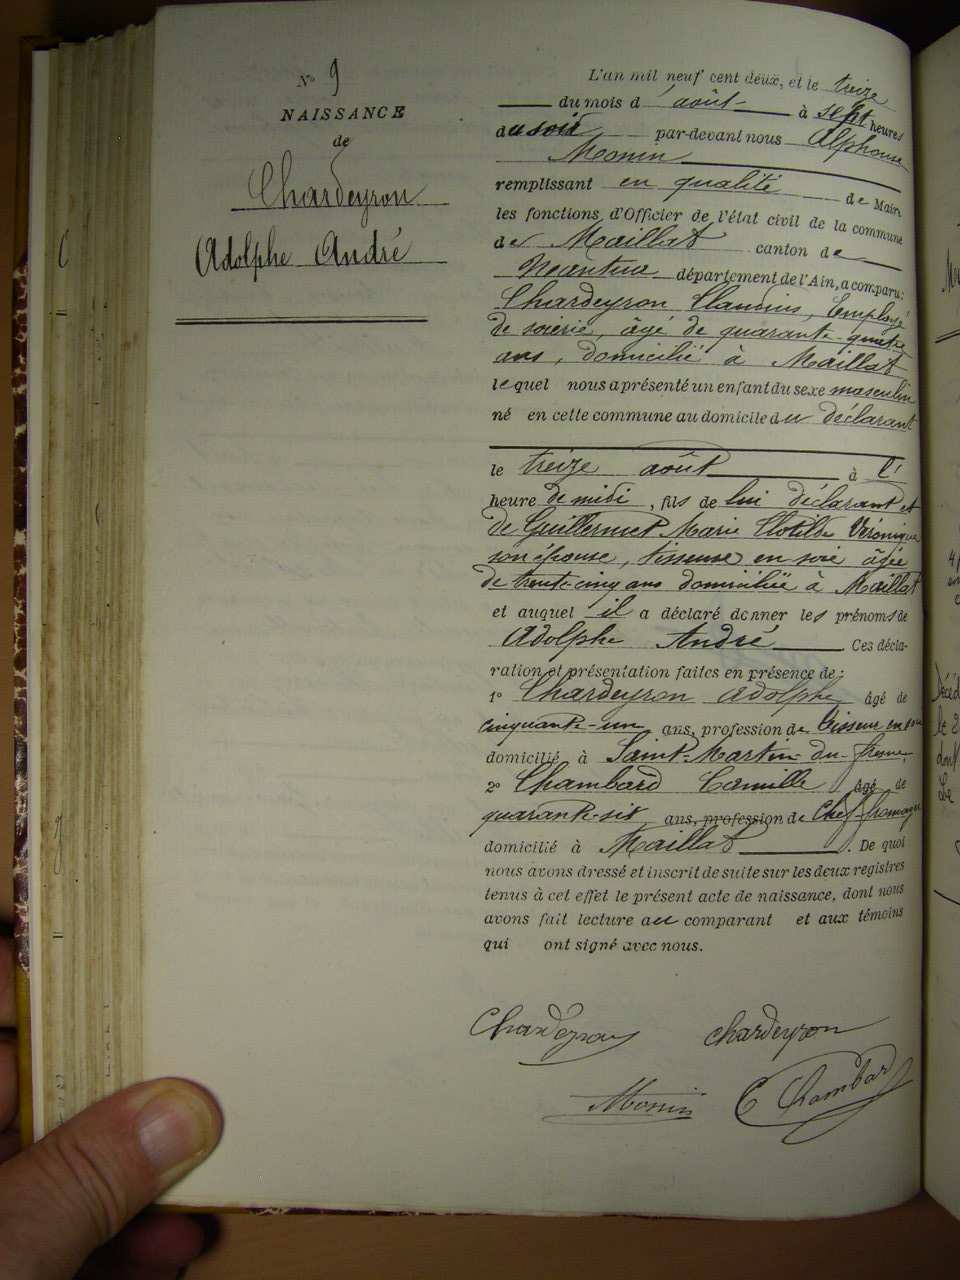 N° 9
NAISSANCE
de
Chardeyron
Adolphe André
L'an mil neuf cent deux, et le treize
du mois d'août à sept heures
du soir par-devant nous Alphonse
Monin
remplissant en qualité de Maire
les fonctions d'Officier de l'état civil de la commune
de Maillat canton de
Nantua département de l'Ain, a comparu:
Chardeyron Claudius, Employé
de soierie, âgé de quarante-quatre
ans, domicilié à Maillat
lequel nous a présenté un enfant du sexe masculin
né en cette commune au domicile du déclarant
le treize août à l'
heure de midi, fils de lui déclarant et
de Guillermet Marie Clotilde Véronique
son épouse, tisseuse en soie âgée
de trente-cinq ans domiciliée à Maillat
et auquel il a déclaré donner les prénoms de
Adolphe André Ces décla-
ration et présentation faites en présence de:
1° Chardeyron Adolphe âgé de
cinquante-un ans, profession de tisseur en soie
domicilié à Saint-Martin-du-fresne
2° Chambard Camille âgé de
quarante-six ans, profession de Chef-fromager
domicilié à Maillat. De quoi
nous avons dressé et inscrit de suite sur les deux registres
tenus à cet effet le présent acte de naissance, dont nous
avons fait lecture au comparant et aux témoins
qui ont signé avec nous.
Chardeyron chardeyron
Monin C Chambard
Décéd
le 2
dont
Le